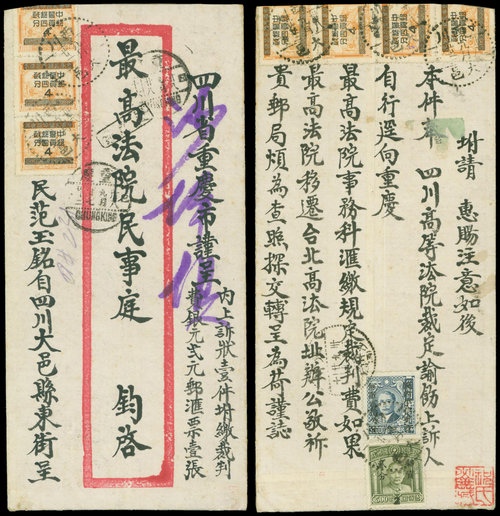 四川省重慶市謹呈
內上訴狀壹件坿繳裁判
費銀元弍元郵匯票壹張
最高法院民事庭 鈞啓
民范玉銘自四川大邑縣東街呈
CHUNGKING
坿請 惠賜注意如後
本件奉 四川高等法院裁定諭飭上訴人
自行逕向重慶
最高法院事務科匯繳規定裁判費如果
最高法院移遷台北高法院址辦公敬祈
貴郵局煩為查照探交轉呈為荷謹誌